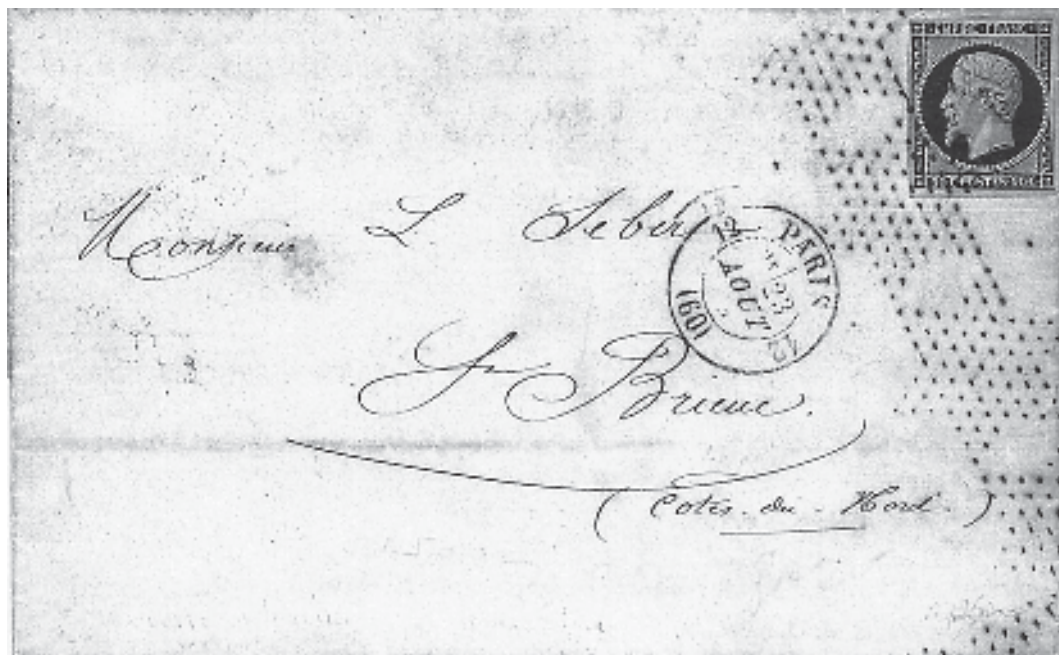 EMPIRE FRANC
CENTIMES
Monsieur L
PARIS
23
AOUT
(60)
St Brieuc.
(Cotes du Nord)